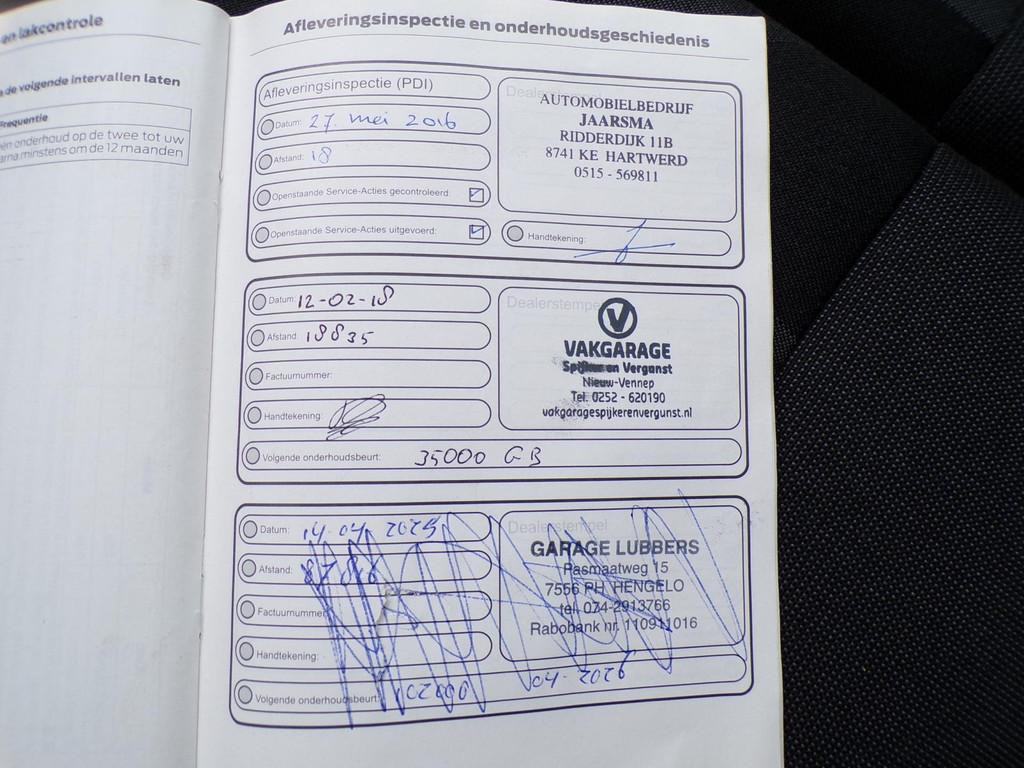 en lakcontrole
de volgende intervallen laten
Frequentie
onderhoud op de twee tot uw
minstens om de 12 maanden
Afleveringsinspectie en onderhoudsgeschiedenis
Afleveringsinspectie (PDI)
Datum: 27. mei 2016
Afstand: 18
Openstaande Service-Acties gecontroleerd:
Openstaande Service-Acties uitgevoerd:
Dealerstempel
AUTOMOBIELBEDRIJF
JAARSMA
RIDDERDIJK 11B
8741 KE HARTWERD
0515 - 569811
Handtekening:
Datum: 12-02-18
Afstand: 18835
Factuurnummer:
Handtekening:
Volgende onderhoudsbeurt: 35000 GB
Dealerstempel
V
VAKGARAGE
Spijker en Vergunst
Nieuw-Vennep
Tel. 0252 - 620190
vakgaragespijkerenvergunst.nl
Datum: 14-04-2025
Afstand:
Factuurnummer
Handtekening:
Volgende onderhoudsbeurt: 102000 04-2026
Dealerstempel
GARAGE LUBBERS
Pasmaatweg 15
7556 PH HENGELO
tel. 074-2913766
Rabobank nr. 110911016